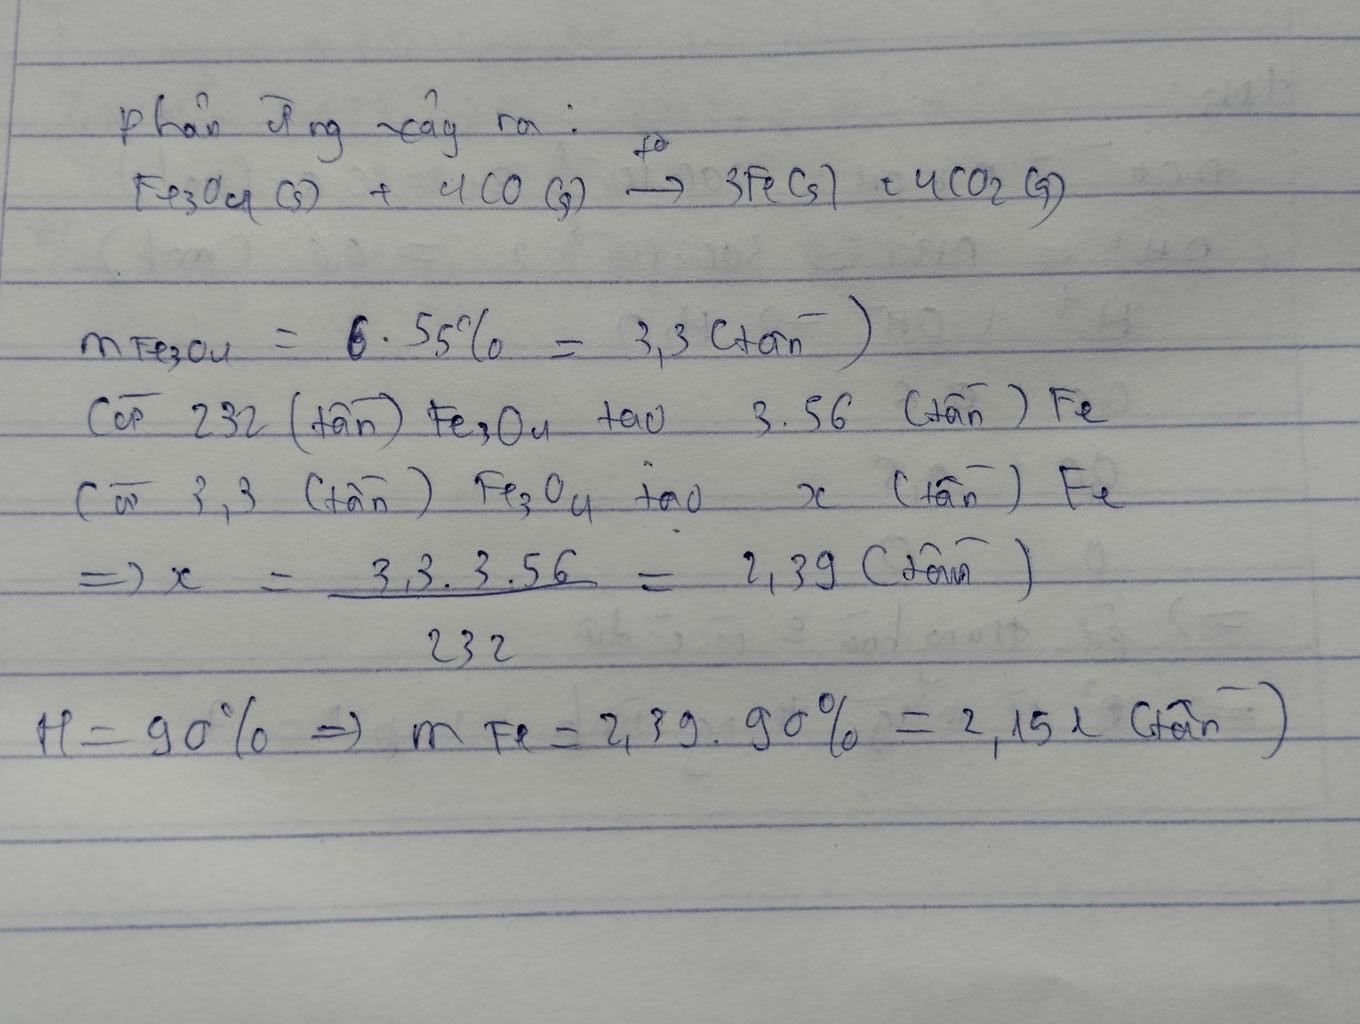 Phản ứng xảy ra:
Fe3O4 (s) + 4CO (g) t° → 3Fe (s) + 4CO2 (g)
m Fe3O4 = 6.55% = 3,3 (tấn)
Cứ 232 (tấn) Fe3O4 tạo 3.56 (tấn) Fe
Cứ 3,3 (tấn) Fe3O4 tạo x (tấn) Fe
=> x = 3,3.3.56 / 232 = 2,39 (tấn)
H = 90% => m Fe = 2,39.90% = 2,151 (tấn)